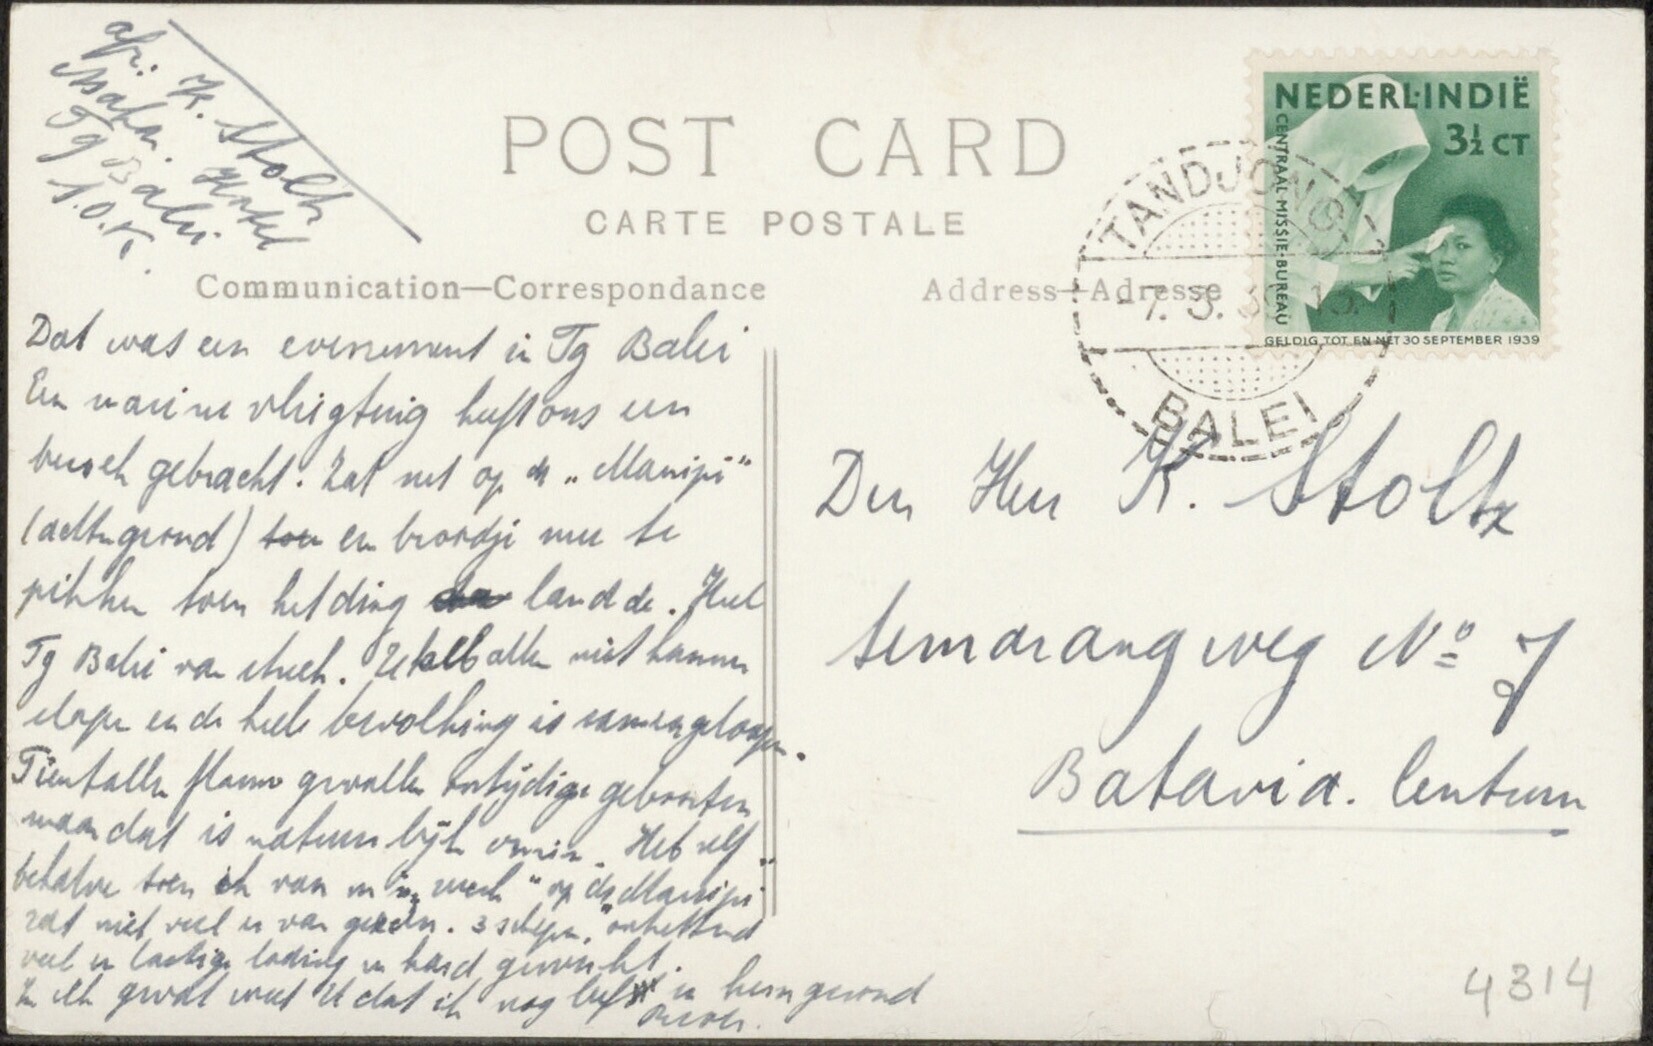 afz. K. Stoltz
Asahan Hotel
Tg Balei
S.O.K.
POST CARD
CARTE POSTALE
Communication—Correspondance
Address—Adresse
NEDERL·INDIË
3½ CT
CENTRAAL MISSIE-BUREAU
GELDIG TOT EN MET 30 SEPTEMBER 1939
TANDJONG
-7. 3. 39 13.
BALEI
Dat was een evenement in Tg Balei
Een marine vliegtuig heeft ons een
bezoek gebracht. Zat net op de „Manipi"
(achtergrond) toen en broodje mee te
pikken toen het ding landde. Heel
Tg Balei van streek. Ze zullen allen niet kunnen
slapen en de heele bevolking is samengeloopen.
Tientallen flauw gevallen ontijdige geboorten
maar dat is natuurlijk onzin. Heb zelf
behalve toen ik van m'n werk" op de Manipi
zat niet veel er van gezien. 3 schepen, ontzettend
veel en lastige lading en hard gewerkt.
In elk geval weet U dat ik nog leef en kern gezond
Den Heer K. Stoltz
Semarangweg No 7
Batavia. Centrum
4314